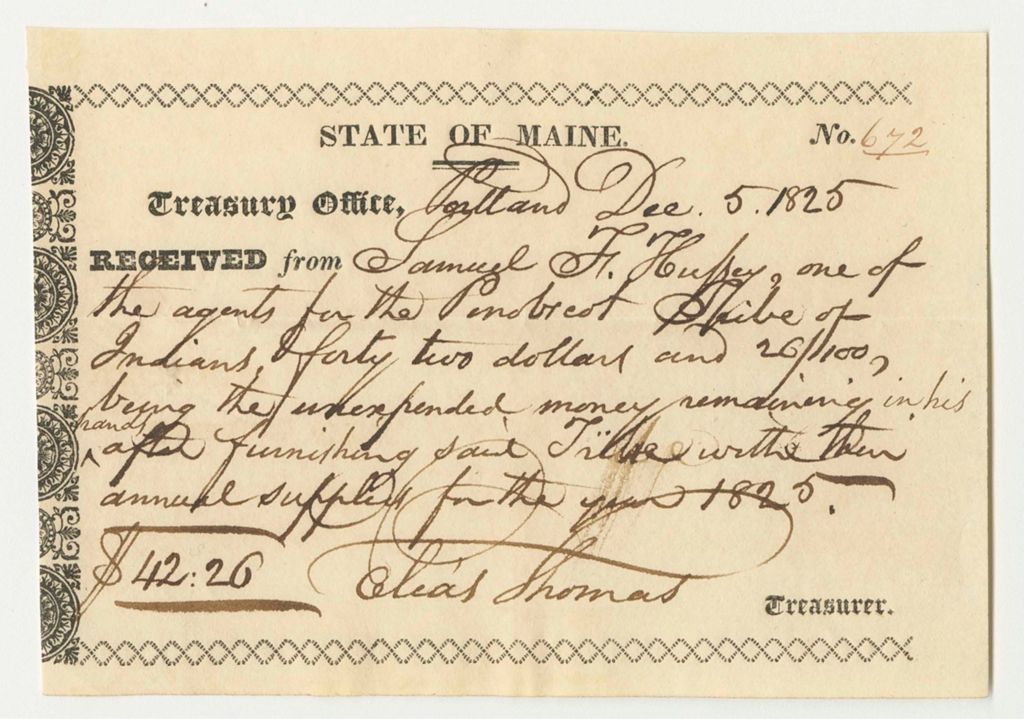 STATE OF MAINE.
No. 672
Treasury Office, Portland Dec. 5. 1825
RECEIVED from Samuel F. Hussey, one of
the agents for the Penobscot Tribe of
Indians, forty two dollars and 26/100,
being the unexpended money remaining in his
hands
^ after furnishing said Tribe with their
annual supplies for the year 1825.
$42:26 Elias Thomas
Treasurer.